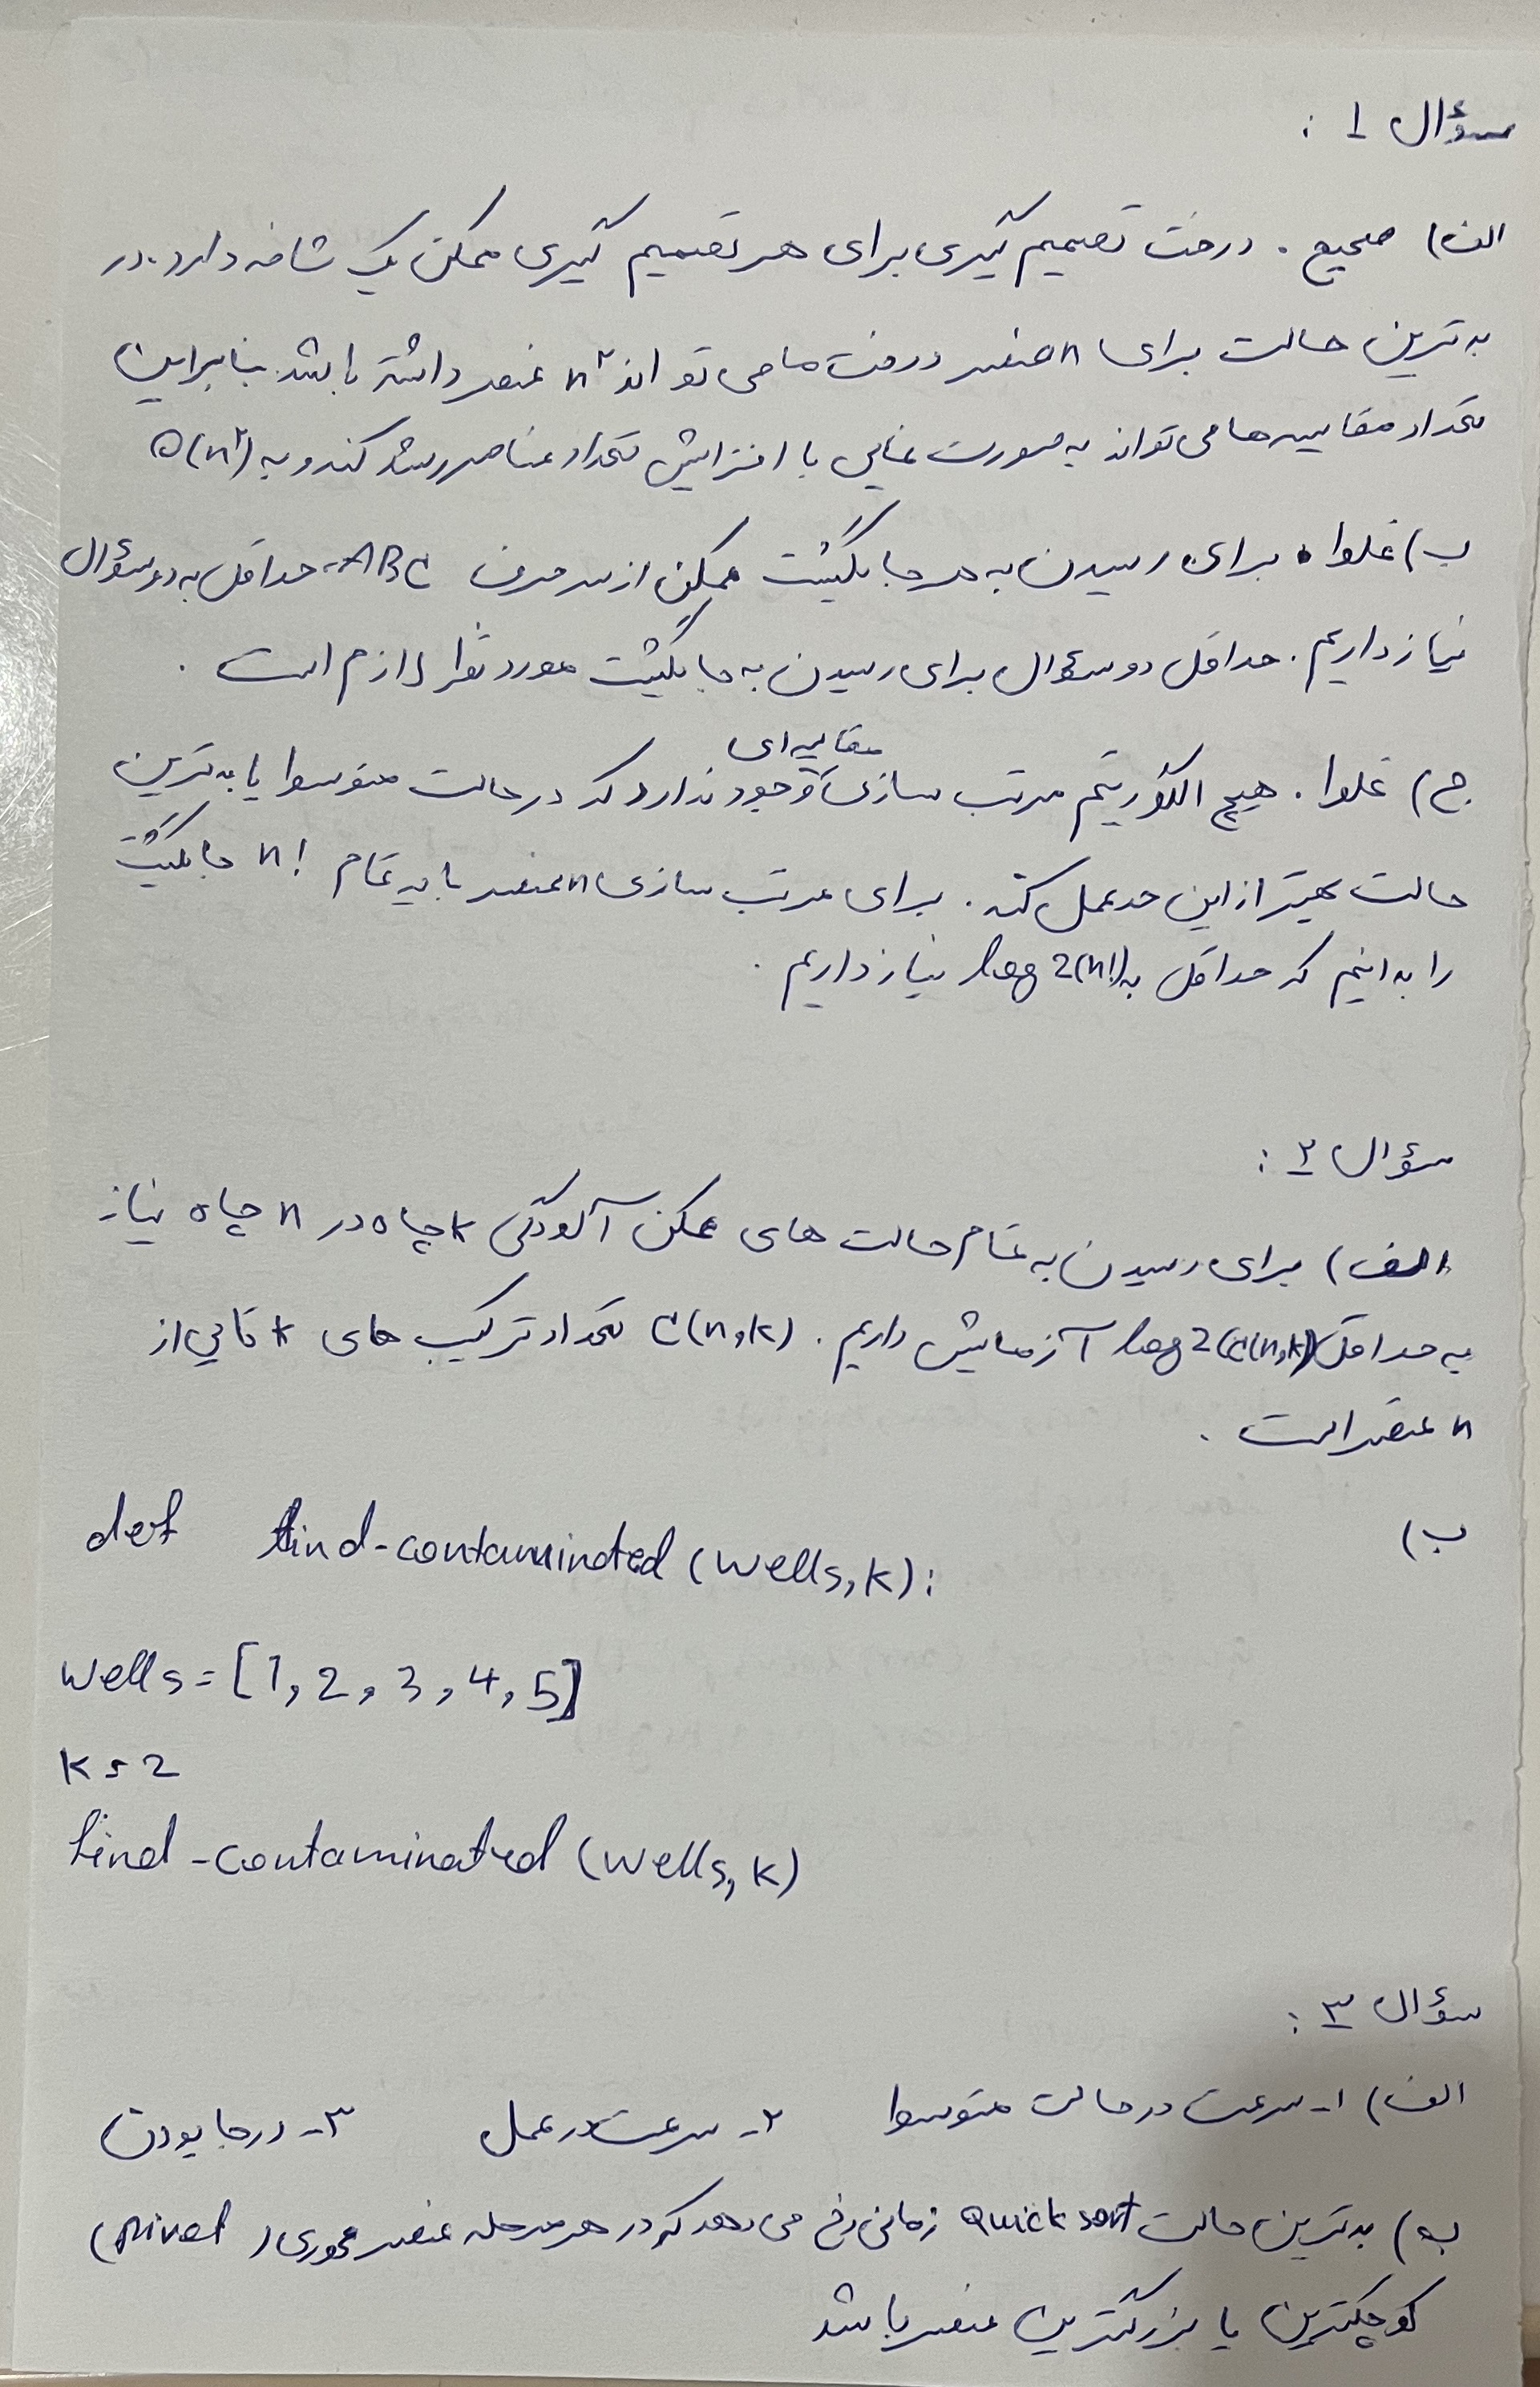 سؤال 1 :
الف) صحیح . درخت تصمیم گیری برای هر تصمیم گیری ممکن یک شاخه دارد. در
بدترین حالت برای n عنصر درخت ما می تواند n^۲ عنصر داشته باشد. بنابراین
تعداد مقایسه ها می تواند به صورت نمایی با افزایش تعداد عناصر رشد کند و به O(n^۲)
ب) غلط . برای رسیدن به هر جایگشت ممکن از سه حرف ABC، حداقل به دو سؤال
نیاز داریم . حداقل دو سؤال برای رسیدن به جایگشت مورد نظر لازم است .
ج) غلط . هیچ الگوریتم مرتب سازی مقایسه ای وجود ندارد که در حالت متوسط یا بدترین
حالت بهتر از این حد عمل کند . برای مرتب سازی n عنصر باید تمام n! جایگشت
را بدانیم که حداقل به log 2(n!) نیاز داریم .
سؤال ۲ :
الف) برای رسیدن به تمام حالت های ممکن آلودگی k چاه در n چاه نیاز
به حداقل log 2(C(n,k)) آزمایش داریم . C(n,k) تعداد ترکیب های k تایی از
n عنصر است .
ب)
def find-contaminated (wells, k):
wells = [1, 2, 3, 4, 5]
k = 2
find-contaminated (wells, k)
سؤال ۳ :
الف) ۱- سرعت در حالت متوسط ۲- سرعت در عمل ۳- درجا بودن
ب) بدترین حالت Quick sort زمانی رخ می دهد که در هر مرحله عنصر محوری (pivot)
کوچکترین یا بزرگترین عنصر باشد